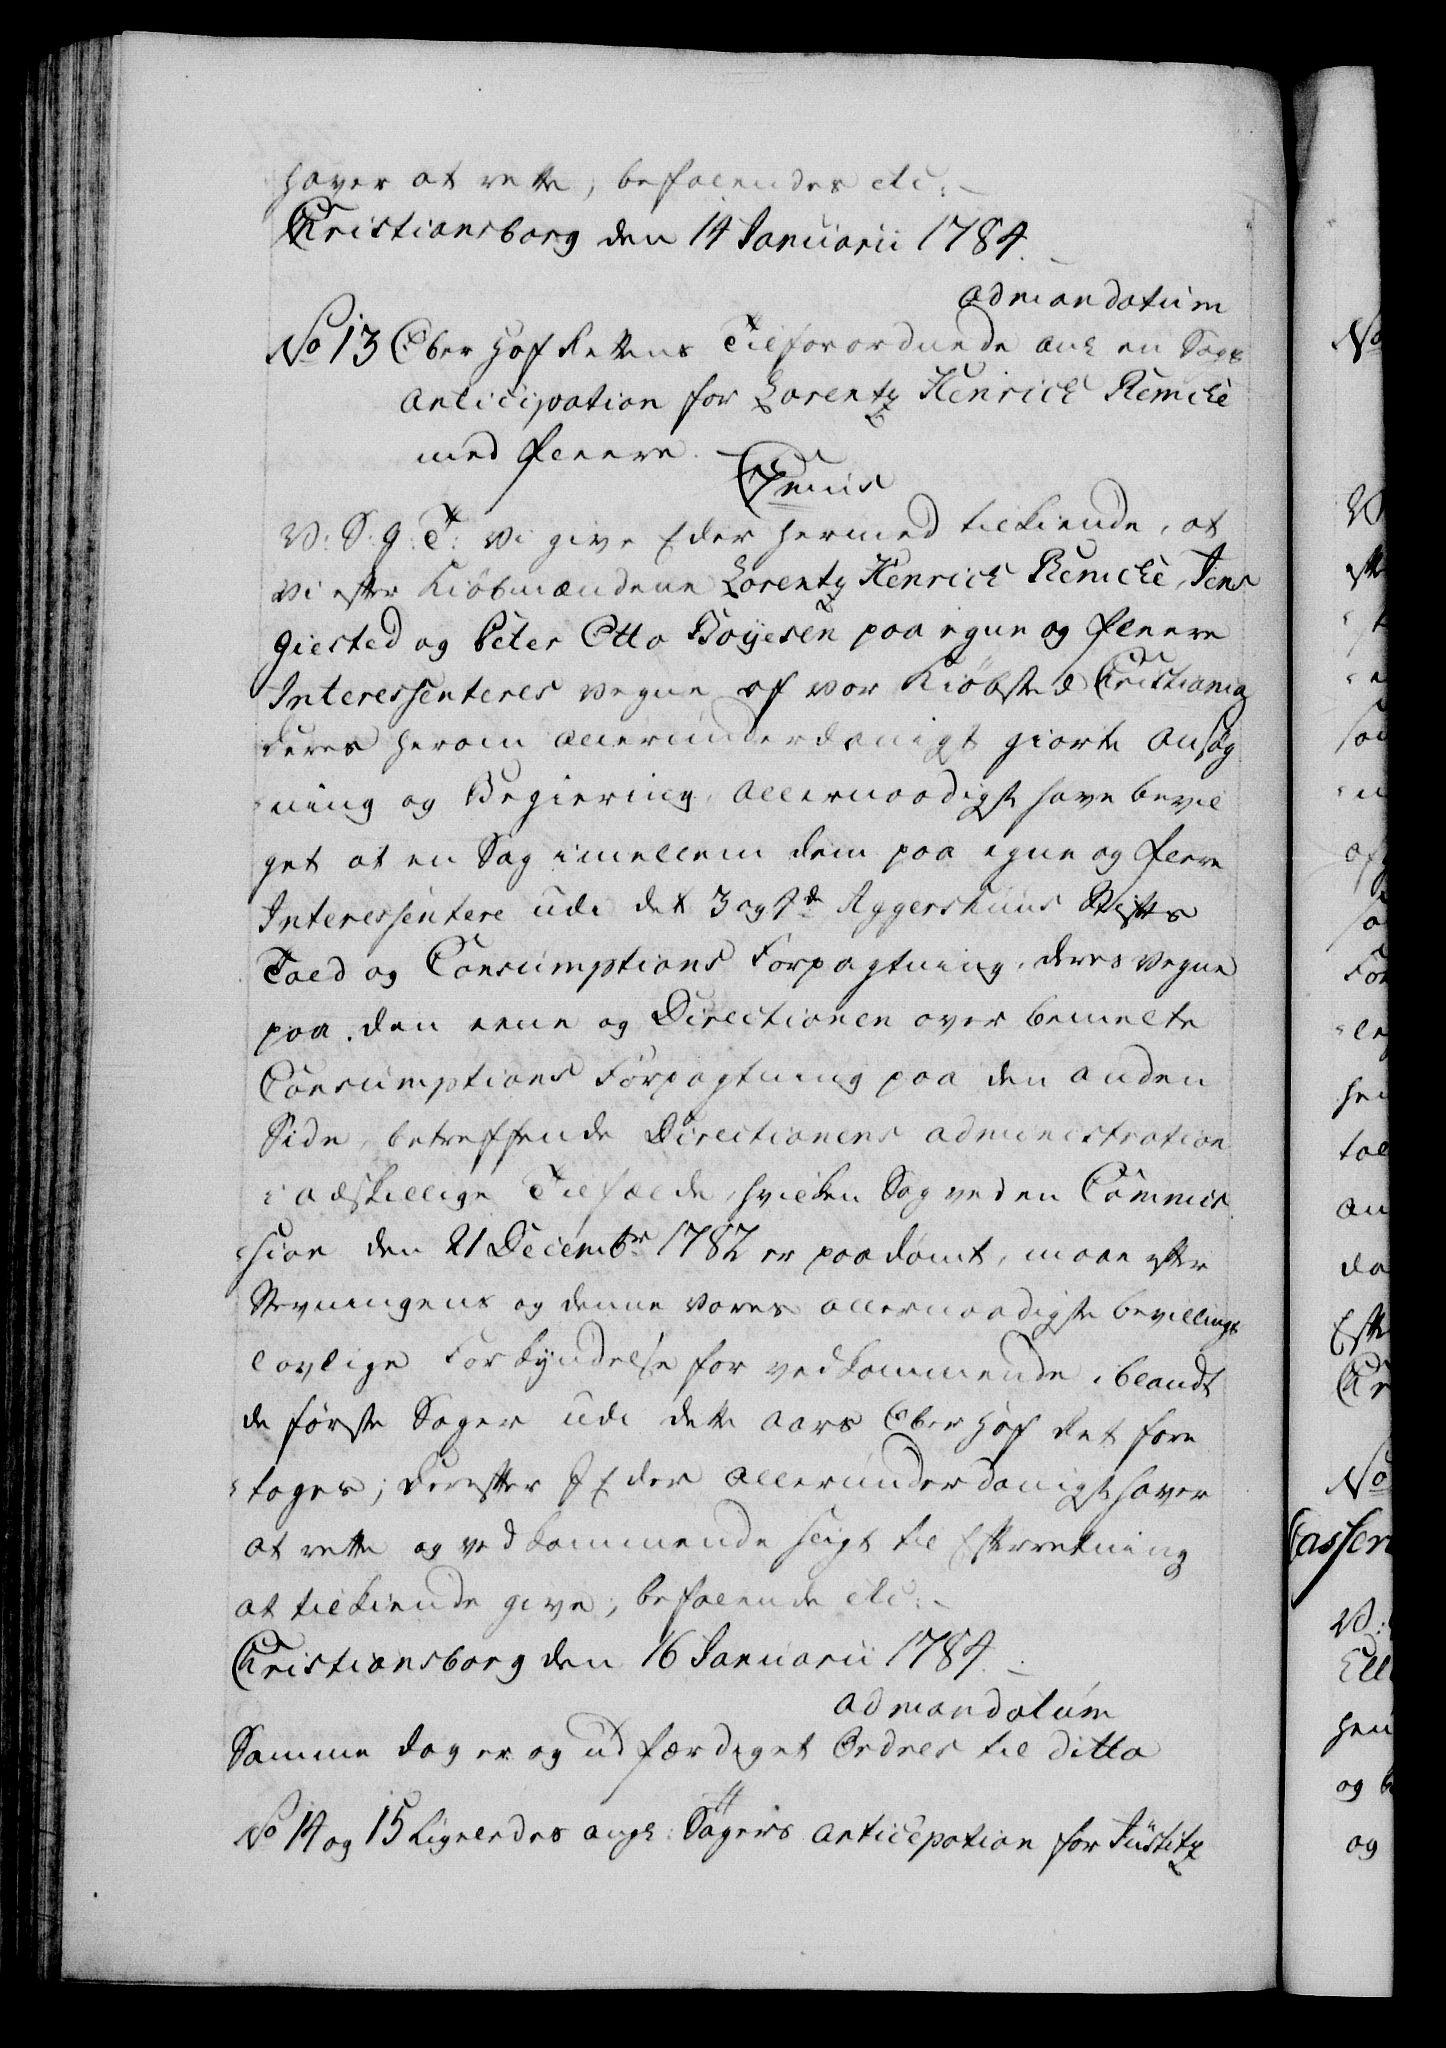 haver at rette, befalendes etc:
Christiansborg den 14 Januarii 1784.
ad mandatum
No 13 Over Hof Rettens Tilforordnede ang en Sags
Anticipation for Lorentz Henrich Remcke
med fleere.
C 7mus
V: S: G: T: Vi give Eder hermed tilkiende, at
Vi efter Kiöbmændene Lorentz Henrich Remcke, Jens
Giested og Peter Otto Boyesen paa egne og fleere
Interessenteres vegne af vor Kiöbsted Christiania
deres herom allerunderdanigst giorte Ansøg
ning og Begiering, allernaadigst have bevil
get at en Sag imellem dem paa egne og fleere
Interessentere udi det 3 og 4de Aggershuus Stifts
Told og Consumptions Forpagtning, deres vegne
paa den eene og Directionen over bemelte
Consumptions Forpagtning paa den anden
Side, betreffende Directionens administration
i adskillige Tilfælde, hvilken Sag ved en Commis
sion den 21 Decembr 1782 er paadömt, maae efter
Stevningens og denne vores allernaadigste bevillings
lovlige Forkyndelse for vedkommende, iblandt
de første Sager udi dette Aars Over Hof Ret fore
tages; derefter I Eder allerunderdanigst haver
at rette og vedkommende sligt til Efterretning
at tilkiende give, befalende etc:
Christiansborg den 16 Januarii 1784.
ad mandatum
Samme dag er og udfærdiget Ordres til ditto
No 14 og 15 Lignendes angl: Sagers Anticipation for Justitz